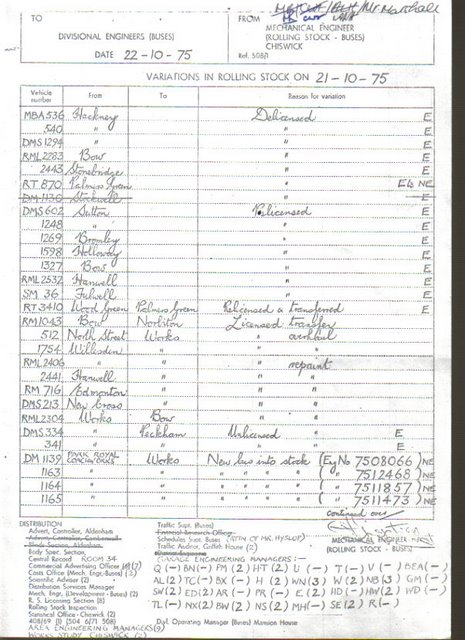 Mr Marshall
TO
DIVISIONAL ENGINEERS (BUSES)
DATE 22-10-75
FROM
MECHANICAL ENGINEER
(ROLLING STOCK - BUSES)
CHISWICK
Ref. 508/1
VARIATIONS IN ROLLING STOCK ON 21-10-75
Vehicle number From To Reason for variation
MBA 536 Hackney Delicensed E
540 " " E
DMS 1294 " " E
RML 2283 Bow " E
2443 Stonebridge " E
RT 870 Palmers Green " E & NE
DM 1130 Stockwell " E
DMS 602 Sutton Relicensed E
1248 " " E
1269 Bromley " E
1598 Holloway " E
1327 Bow " E
RML 2532 Hanwell " E
SM 36 Fulwell " E
RT 3410 Wood Green Palmers Green Relicensed & transferred E
RM 1043 Bow Norbiton Licensed transfer
512 North Street Works " overhaul
1754 Willesden " " "
RML 2406 " " " repaint
2441 Hanwell " " "
RM 716 Edmonton " " "
DMS 213 New Cross " " "
RML 2304 Works Bow " "
DMS 334 " Peckham Unlicensed " E
341 " " " " E
DM 1139 PARK ROYAL COACHWORKS Works New bus into stock (Eng No 7508066) NE
1163 " " " " " ( " 7512468) NE
1164 " " " " " ( " 7511857) NE
1165 " " " " " ( " 7511473) NE
continued over
MECHANICAL ENGINEER
(ROLLING STOCK - BUSES)
DISTRIBUTION
Advert. Controller, Aldenham
Body Spec. Section,
Central Record ROOM 34
Commercial Advertising Officer
Costs Office (Mech. Eng.-Buses) (2)
Scientific Adviser (2)
Distribution Services Manager
Mech. Engr. (Development - Buses) (2)
R. S. Licensing Section (8)
Rolling Stock Inspection
Statistical Office - Chiswick (2)
408/69 (1) (504 6/71 508)
AREA ENGINEERING MANAGERS (9)
WORKS STUDY CHISWICK (2)
Traffic Supt. (Buses)
Financial Research Officer
Schedules Supt. (Buses) (ATTN OF MR. HYSLOP)
Traffic Auditor, Griffith House (2)
GARAGE ENGINEERING MANAGERS :-
Q (-) BN(-) PM (2) HT (2) U (-) T (-) V (-) BEA (-)
AL (2) TC (-) BX (-) H (2) WN (3) W (2) NB (3) GM (-)
SW (2) ED (2) AR (-) PR (-) E (2) HD (-) HW (2) WD (-)
TL (-) NX (2) BW (2) NS (2) MH (-) SE (2) R (-)
Dvl. Operating Manager (Buses) Mansion House